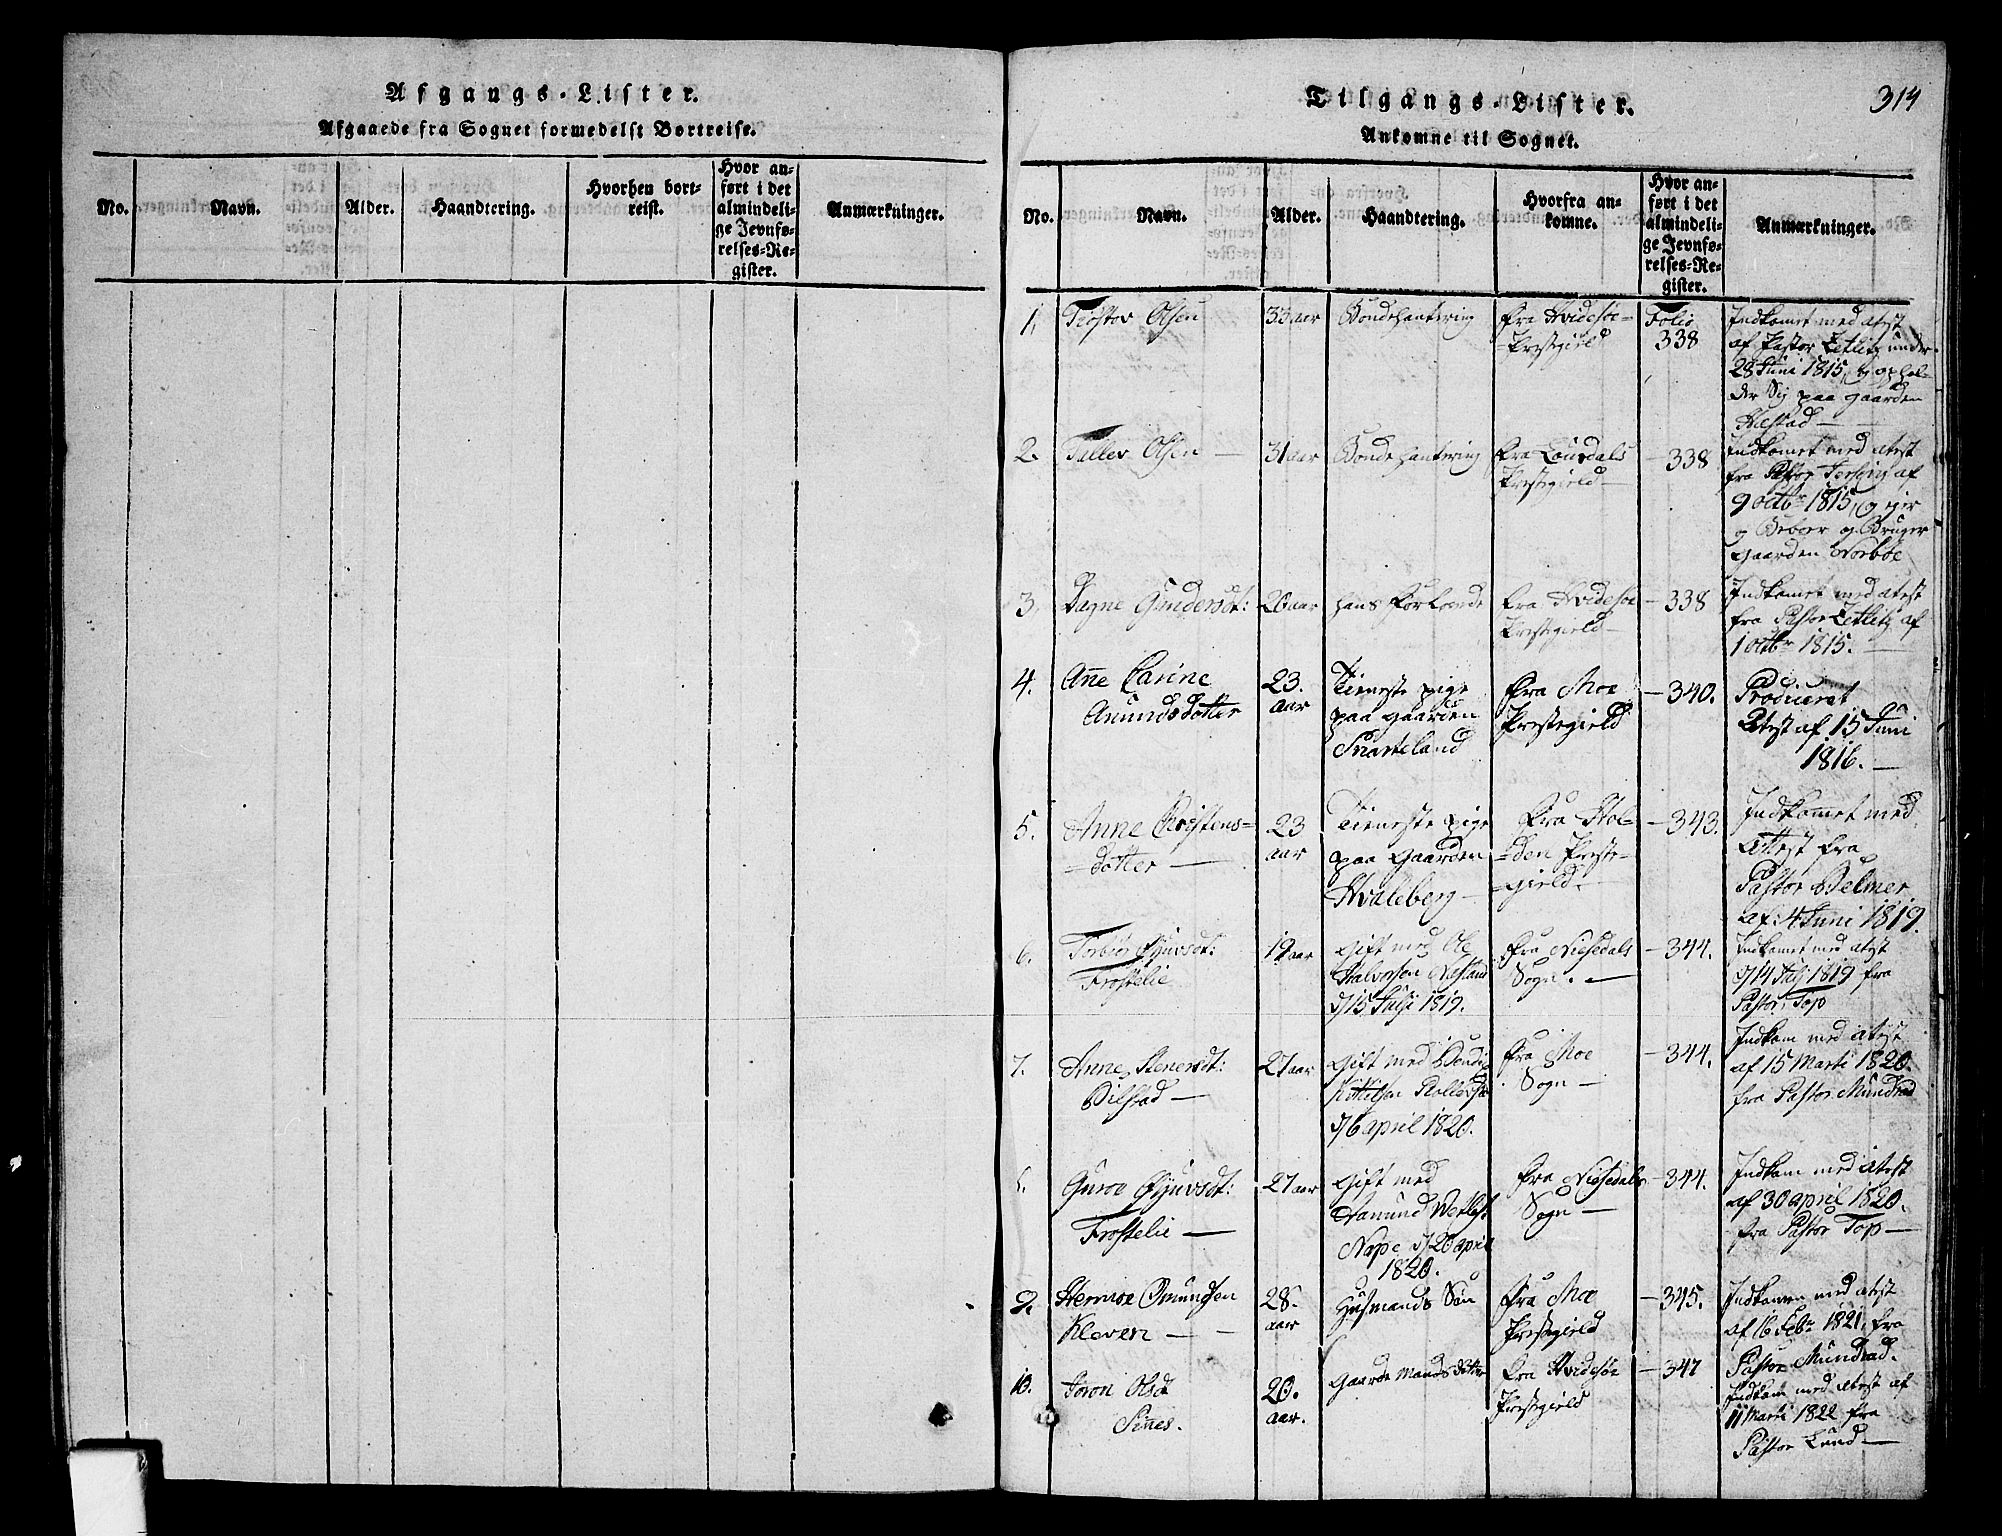 Afgangs-Lister.
Afgaaede fra Sognet formedelst Bortreise.
No.
Navn.
Alder.
Haandtering.
Hvorhen bort-
reist.
Hvor an-
ført i det
almindeli-
ge Jevnfø-
relses-Re-
gister.
Anmærkninger.
314
Tilgangs-Lister.
Ankomne til Sognet.
No.
Navn.
Alder.
Haandtering.
Hvorfra an-
komne.
Hvor an-
ført i det
almindeli-
ge Jevnfø-
relses-Re-
gister.
Anmærkninger.
1.
Olsen
33 aar
Bondehantering
fra Hvidesøe-
-Prestegield
Folio
338
Indkomet med atest
af Pastor Zetlitz under
28 Juni 1815, og ophol-
der Sig paa gaarden
2.
Tallev Olsen
31 aar
Bondehantering
fra
Prestegield
338
Indkomet med atest
fra Pastor af
9 octbr 1815, og ejer
og Beboer og Bruger
gaarden Norbøe
3.
Dagne Gundersdt:
20 aar
hans Forlovede
fra Hvidesøe
Prestegield
338
Indkomet med atest
fra Pastor Zetlitz af
1 octbr 1815.
4.
Ane Carine
Amundsdotter
23.
aar
Tieneste pige
paa gaarden
Snarteland
fra Moe
Prestegield
340.
Produceret
Atest af 15 Juni
1816.
5.
Anne Christens=
=dotter
23
aar
Tieneste pige
paa Gaarden
Hvaleberg
fra Hol-
=den Preste-
gield.
343.
Indkommet med
Attest fra
Pastor Belmer
af 4 Juni 1819.
6.
Torbiør Øyuvsdt:
Frostelie
19 aar
Gift med Ole
Halvorsen Næstad
d/15 Julji 1819.
fra Nisedals
Sogn.
344.
Indkomet med atest
d/14 Julj 1819 fra
Pastor Top
7.
Anne Stenersdt:
Bilstad
27 aar
Gift med
Kittelsen
d/6 april 1820.
fra Moe
Sogn
344.
Indkom med atest
af 15 Marti 1820.
fra Pastor Mündrad
8.
Guroe Øyuvsdt:
Frostelie
27 aar
Gift med
Aamund
Nape d/20 april
1820.
fra Nisedals
Sogn
344.
Indkom med atest
af 30 april 1820.
fra Pastor Top
9.
Omundsen
Kleven
28.
aar
Husmands Søn
fra Moe
Prestegield
345.
Indkomen med atest
af 16 Febr 1821. fra
Pastor Mündrad.
10.
Joron Olsd
Sines.
20.
aar.
Gaarde Mands dotter
fra Hvidesøe
Prestegield
347
Indkom med atest af
11 Marti 1822 fra
Pastor Lund